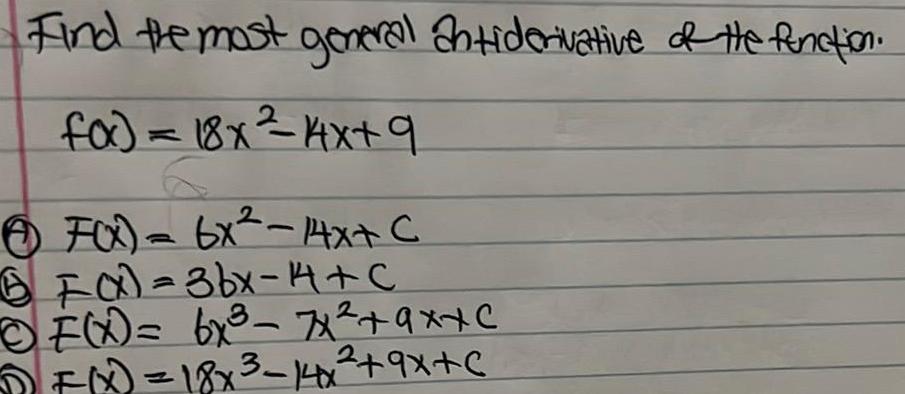 Find the most general Antiderivative of the function.
f(x) = 18x² - 14x + 9
Ⓐ F(x) = 6x² - 14x + C
Ⓑ F(x) = 36x - 14 + C
Ⓒ F(x) = 6x³ - 7x² + 9x + C
Ⓓ F(x) = 18x³ - 14x² + 9x + C